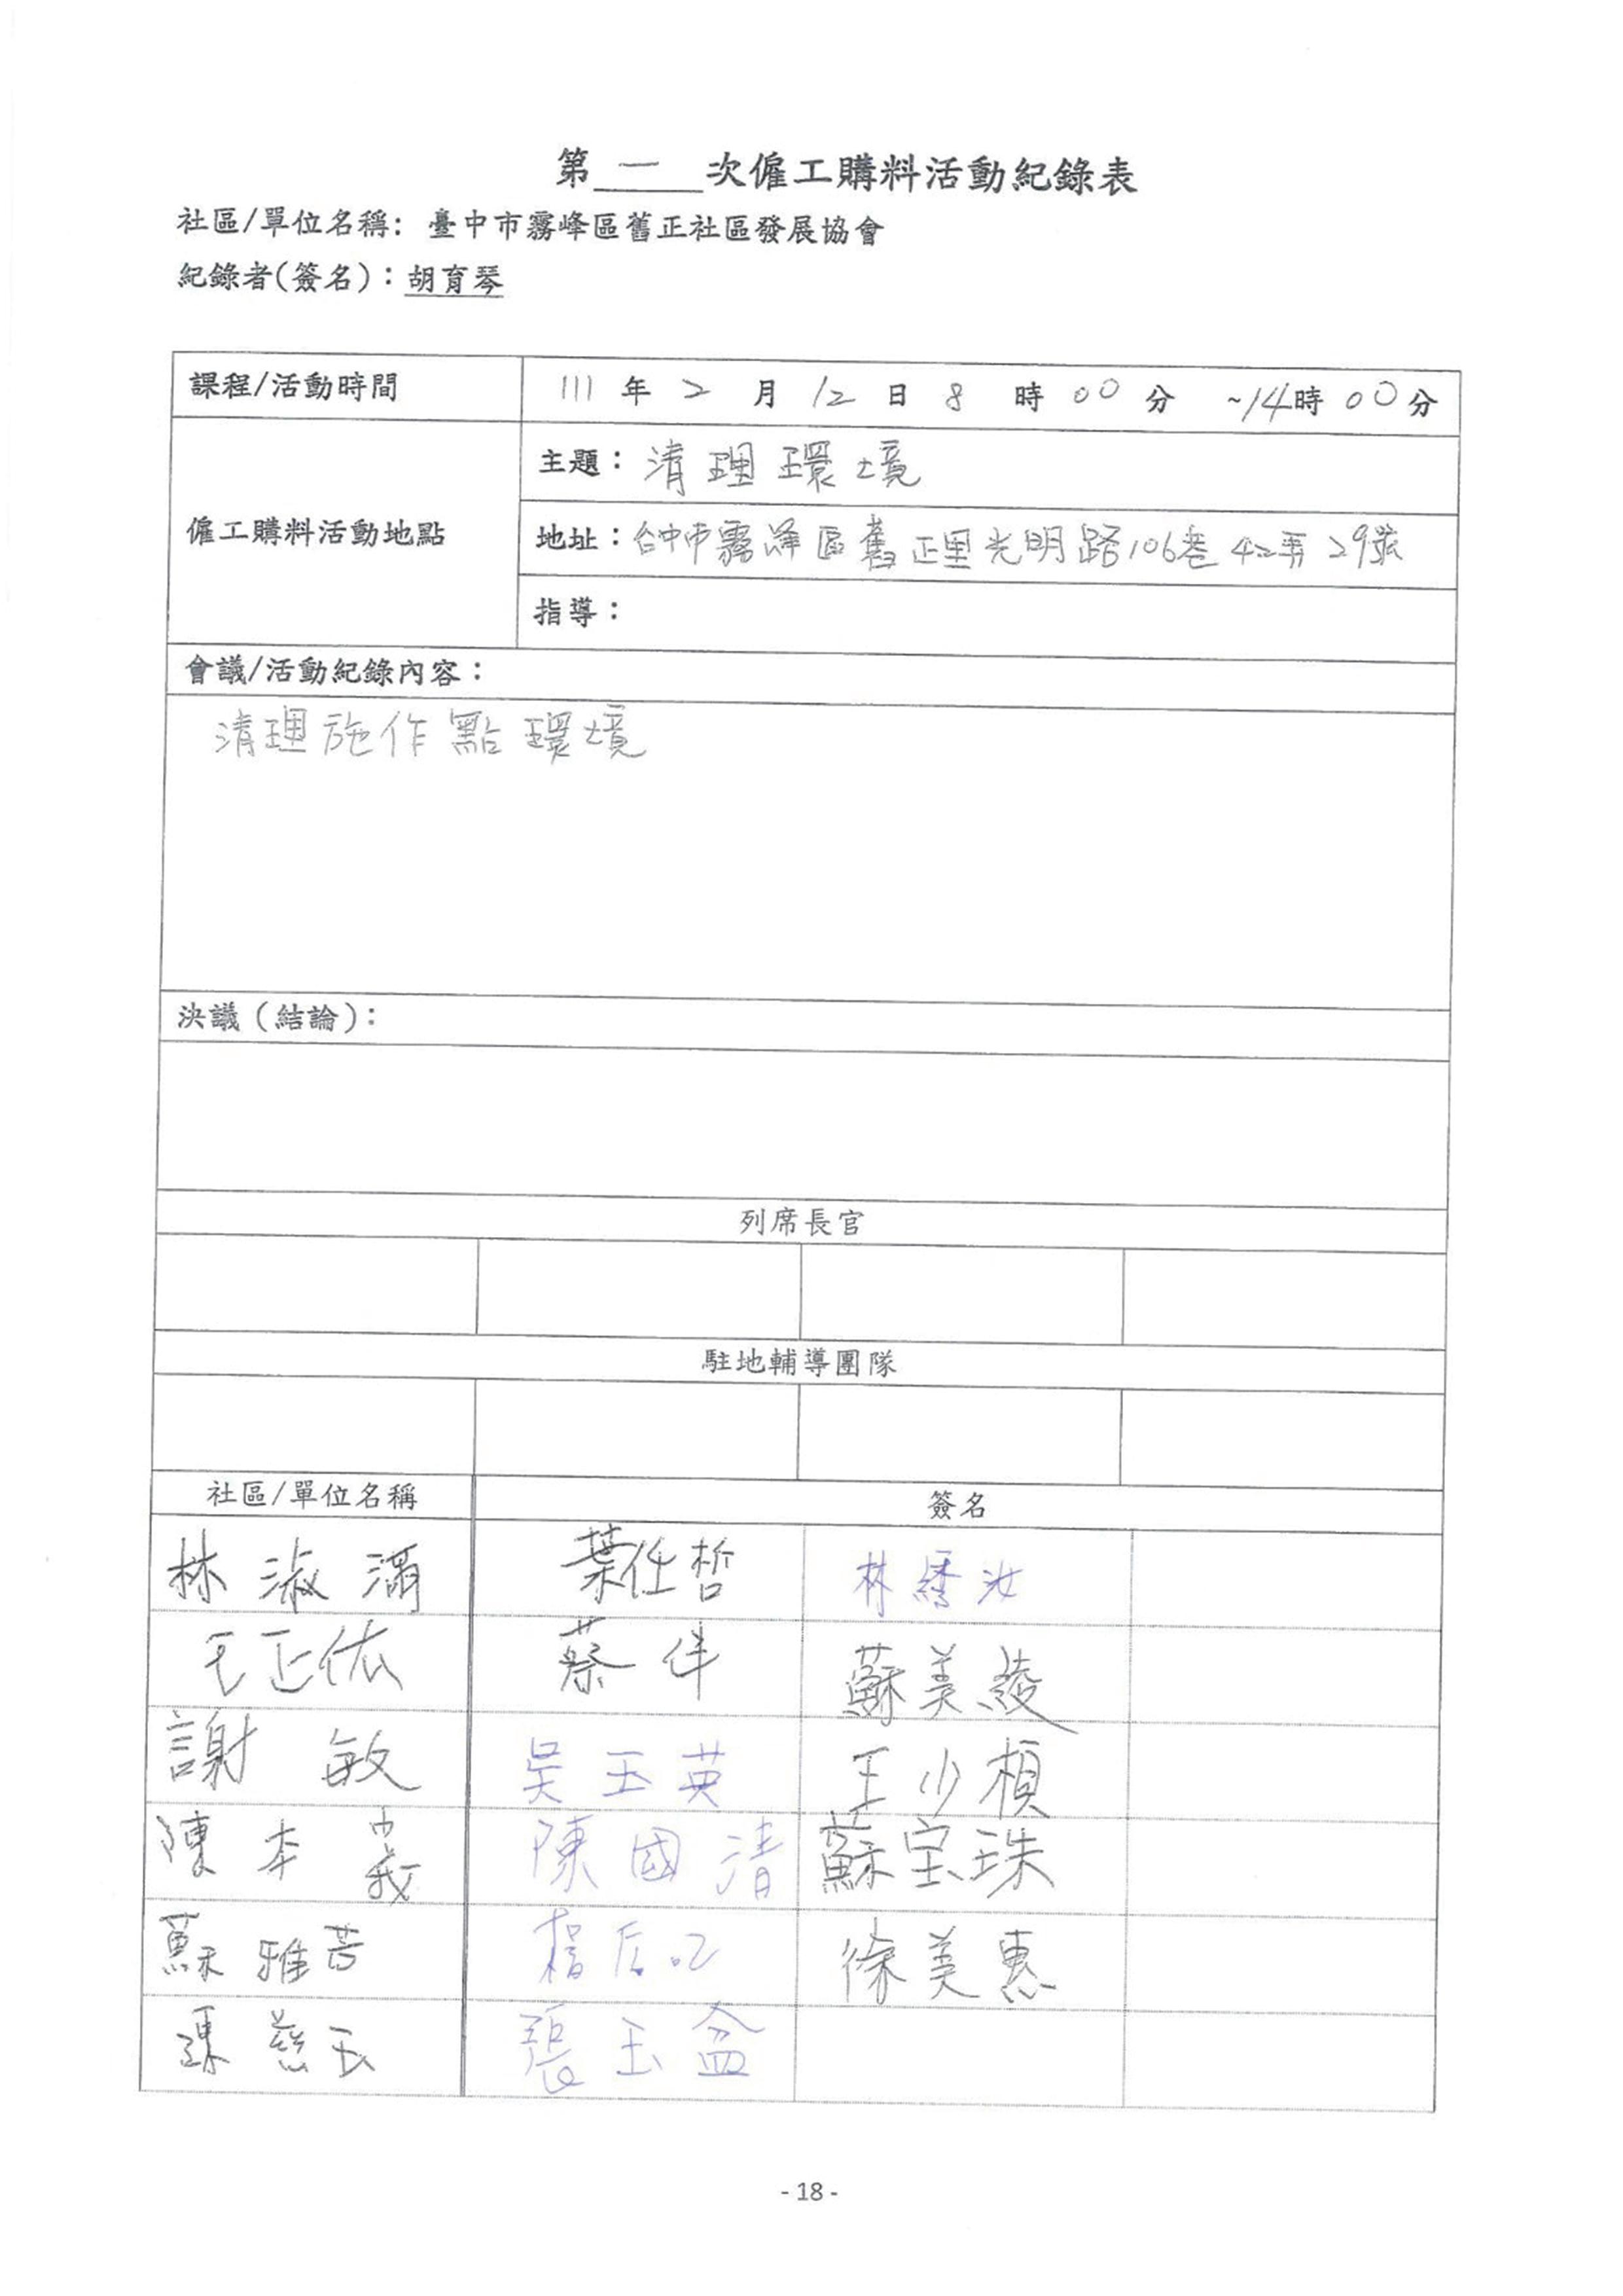 第一次僱工購料活動紀錄表
社區/單位名稱: 臺中市霧峰區舊正社區發展協會
紀錄者(簽名)：胡育琴
課程/活動時間 111 年 2 月 12 日 8 時 00 分 ~14時 00分
僱工購料活動地點
主題：清理環境
地址：台中市霧峰區舊正里光明路106巷42弄29號
指導：
會議/活動紀錄內容：
清理施作點環境
決議（結論）：
列席長官
駐地輔導團隊
社區/單位名稱 簽名
林淑滿 葉任哲 林繻汝
王正佑 蔡伴 蘇美綾
謝敏 吳玉英 王少楨
陳本義 陳國清 蘇宝珠
蘇雅芸 徐美惠
陳慈玉 張玉盆
- 18 -